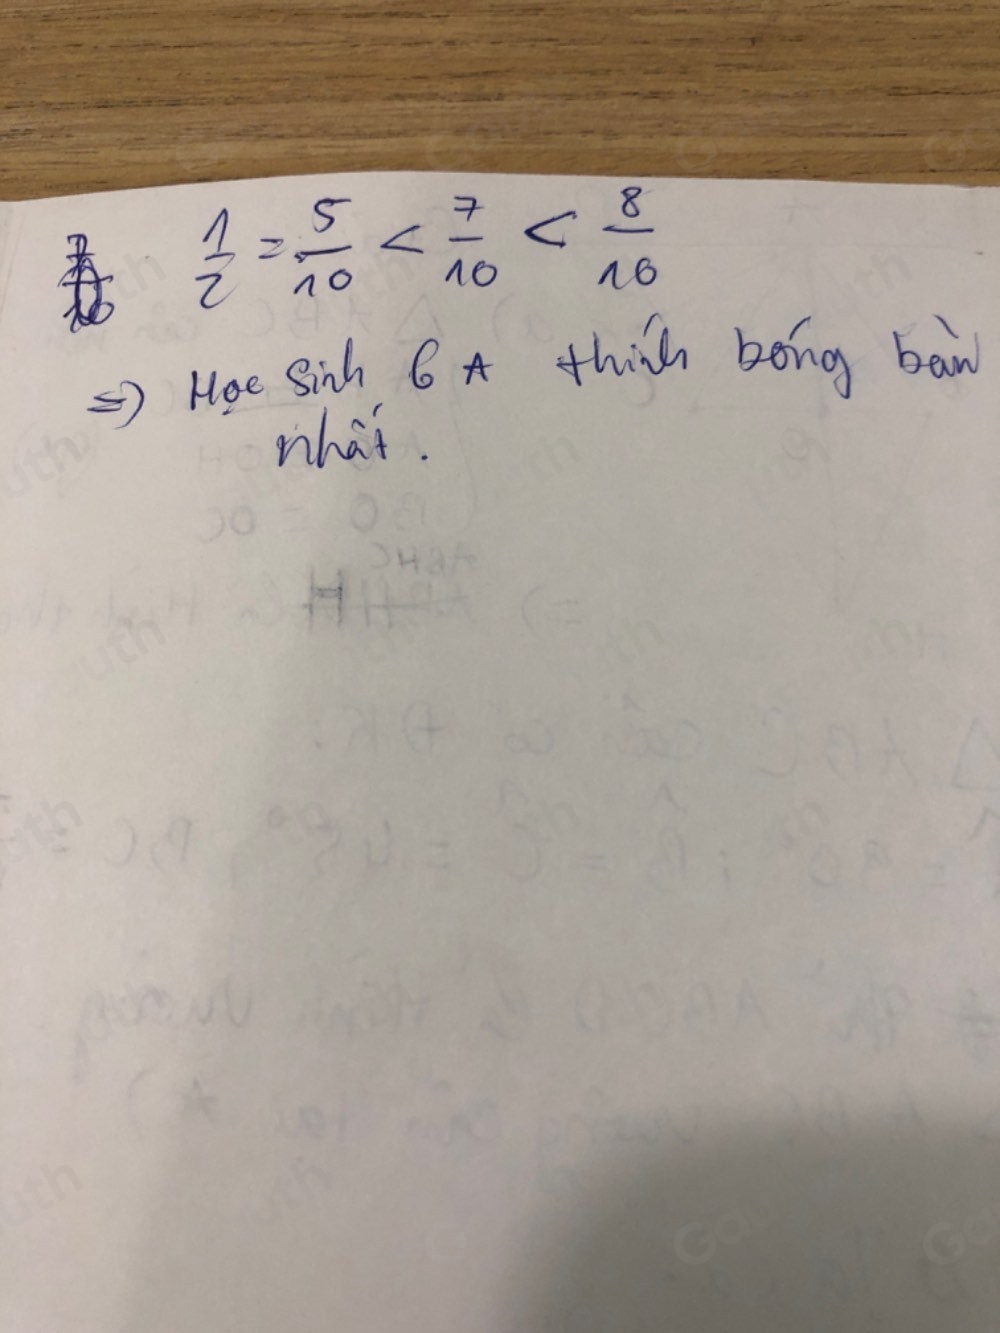 1/2 = 5/10 < 7/10 < 8/10
=) Học sinh 6A thính bóng bàn
nhất.